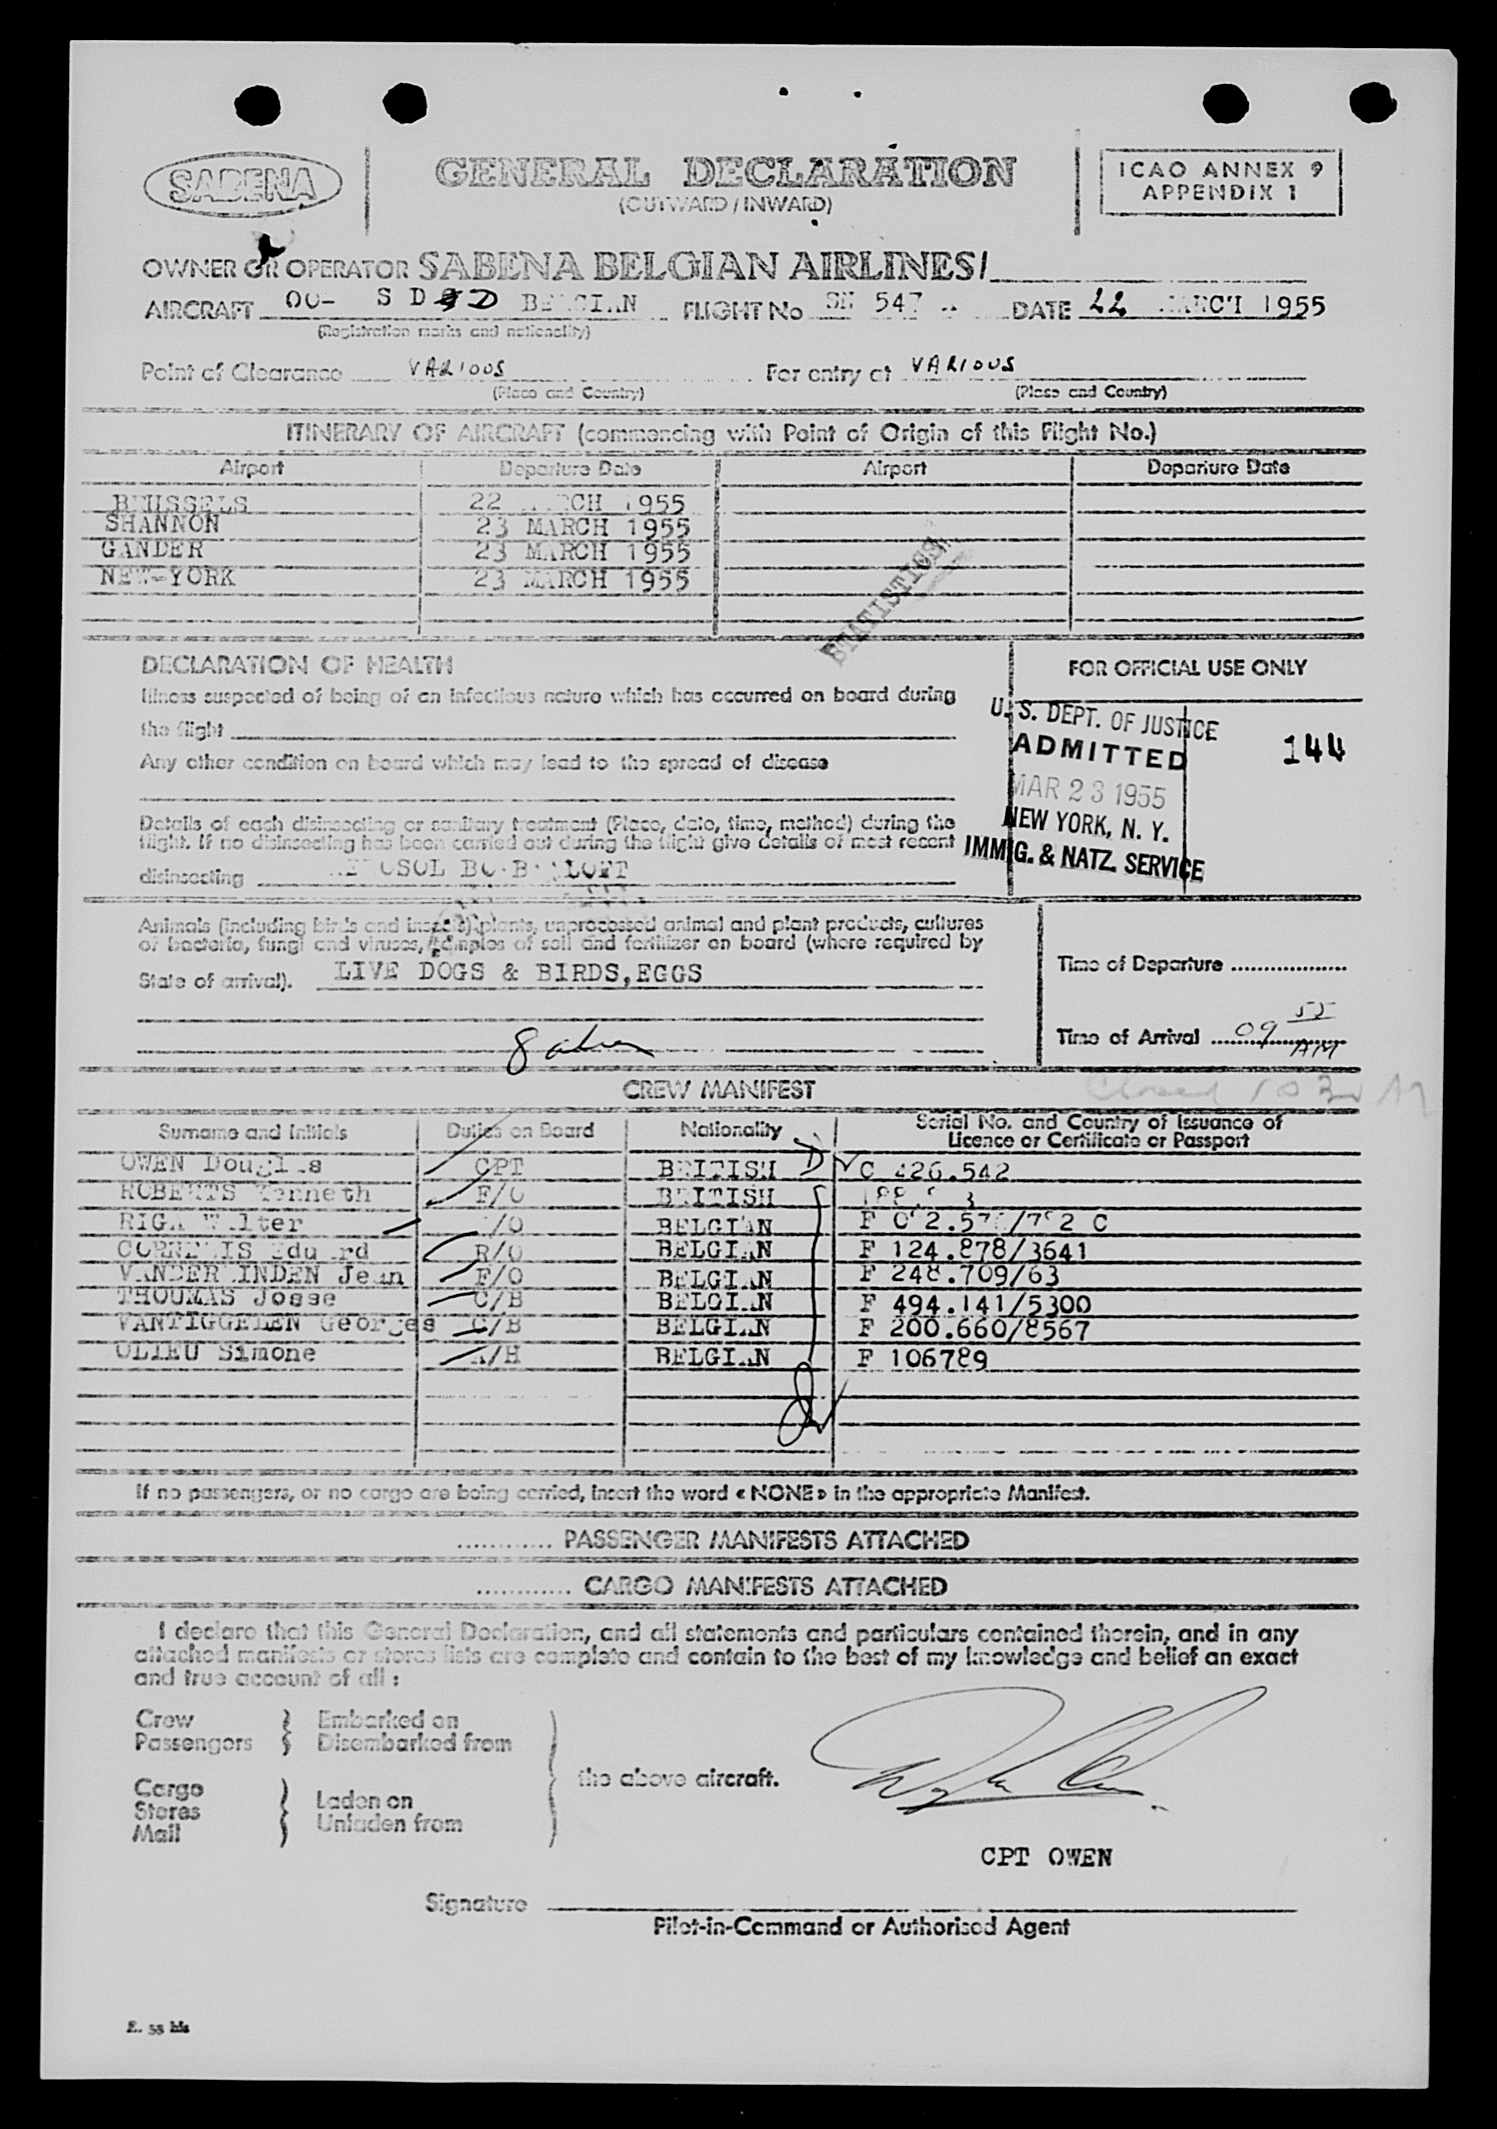 SABENA
GENERAL DECLARATION
(OUTWARD / INWARD)
ICAO ANNEX 9
APPENDIX 1
OWNER OR OPERATOR SABENA BELGIAN AIRLINES/
AIRCRAFT OO- S D D BELGIAN FLIGHT No SN 547 DATE 22 MARCH 1955
(Registration marks and nationality)
Point of Clearance VARIOUS For entry at VARIOUS
(Place and Country) (Place and Country)
ITINERARY OF AIRCRAFT (commencing with Point of Origin of this Flight No.)
Airport Departure Date Airport Departure Date
BRUSSELS 22 MARCH 1955
SHANNON 23 MARCH 1955
GANDER 23 MARCH 1955
NEW-YORK 23 MARCH 1955
STATISTICS
DECLARATION OF HEALTH
Illness suspected of being of an infectious nature which has occurred on board during
the flight
Any other condition on board which may lead to the spread of disease
Details of each disinsecting or sanitary treatment (Place, date, time, method) during the
flight. If no disinsecting has been carried out during the flight give details of most recent
disinsecting
FOR OFFICIAL USE ONLY
U. S. DEPT. OF JUSTICE
ADMITTED
144
MAR 23 1955
NEW YORK, N. Y.
IMMIG. & NATZ. SERVICE
Animals (including birds and insects) plants, unprocessed animal and plant products, cultures
of bacteria, fungi and viruses, samples of soil and fertilizer on board (where required by
State of arrival). LIVE DOGS & BIRDS,EGGS
Time of Departure
Time of Arrival 09 55 AM
Closed
CREW MANIFEST
Surname and Initials Duties on Board Nationality Serial No. and Country of Issuance of
Licence or Certificate or Passport
OWEN Douglas CPT BRITISH C 426.542
ROBERTS Kenneth F/O BRITISH
RIGA Walter /O BELGIAN F
CORNELIS Eduard R/O BELGIAN F 124.878/3641
VANDERLINDEN Jean F/O BELGIAN F 248.709/63
THOUMAS Josse C/B BELGIAN F 494.141/5300
VANTIGGELEN Georges C/B BELGIAN F 200.660/8567
OLIEU Simone A/H BELGIAN F 106789
If no passengers, or no cargo are being carried, insert the word « NONE » in the appropriate Manifest.
............ PASSENGER MANIFESTS ATTACHED
............ CARGO MANIFESTS ATTACHED
I declare that this General Declaration, and all statements and particulars contained therein, and in any
attached manifests or stores lists are complete and contain to the best of my knowledge and belief an exact
and true account of all :
Crew } Embarked on
Passengers } Disembarked from
the above aircraft.
Cargo
Stores } Laden on
Mail } Unladen from
CPT OWEN
Signature
Pilot-in-Command or Authorised Agent
E. 55 bis